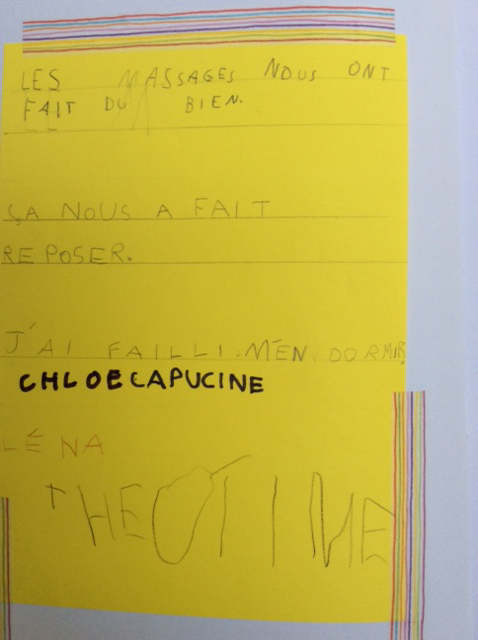 LES MASSAGES NOUS ONT
FAIT DU BIEN.
ÇA NOUS A FAIT
REPOSER.
J'AI FAILLI M'EN DORMIR
CHLOECAPUCINE
LÉNA
THEOTIME